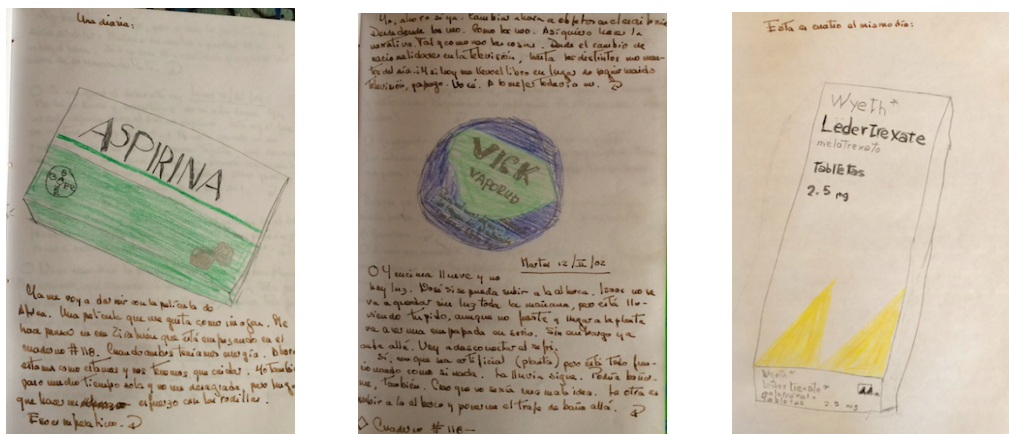 Una diaria:
ASPIRINA
BAYER
Ya me voy a dormir con la película de
Una película que me gusta como imagen. Me
hace pensar en ese que está empezando en el
cuaderno #118. Cuando ambos teníamos energía. Ahora
estamos como estamos y nos tenemos que cuidar. Yo también
paso mucho tiempo sola y no me desagrada, pero tengo
que hacer un esfuerzo con las rodillas.
Eso es imperativo.
Yo, ahora si ya. Cambiar ahora a objetos en el escritorio
Desde donde los uso. Como los uso. Así quiero hacer la
narrativa. Tal y como son las cosas. Desde el cambio de
nacionalidades en la televisión, hasta los distintos
del día. Si hoy me llevo el libro en lugar de seguir mirando
televisión, A lo mejor todavía no.
VICK
VAPORUB
Martes 12/II/02
O Y encima llueve y no
hay luz. se pueda subir a la alberca. no se
va a quedar sin luz toda la mañana, pero está llo-
viendo tupido, aunque no y llegar a la planta
va a ser una empapada en serio. Sin embargo ya
Voy a desconectar el refri.
Si, aunque sea artificial (planta) pero está todo fun-
cionando como si nada. La lluvia sigue. Podría bañar-
me, también. Creo que no sería una mala idea. La otra es
subir a la alberca y ponerme el traje de baño allá.
Cuaderno #118-
Esta es cuatro el mismo día:
Wyeth
Ledertrexate
metotrexato
Tabletas
2.5 mg
Wyeth
Ledertrexate
metotrexato
Tabletas 2.5 mg